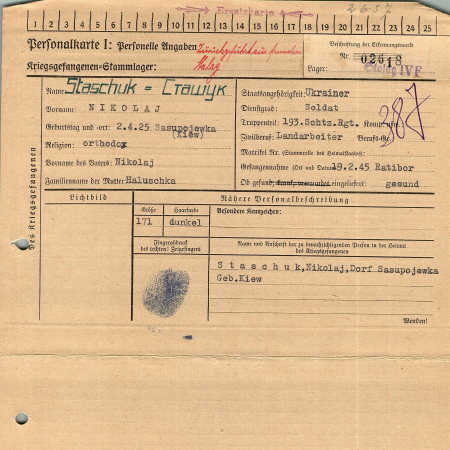 Ersatzkarte
2657
1 2 3 4 5 6 7 8 9 10 11 12 13 14 15 16 17 18 19 20 21 22 23 24 25
Personalkarte I: Personelle Angaben
Kriegsgefangenen-Stammlager:
Beschriftung der Erkennungsmarke
Nr. 02618
Lager: Stalag IV F
Des Kriegsgefangenen
Name: Staschuk = Стащук
Vorname: NIKOLAJ
Geburtstag und -ort: 2.4.25 Sasupojewka
(Kiew)
Religion: orthodox
Vorname des Vaters: Nikolaj
Familienname der Mutter: Haluschka
Staatsangehörigkeit: Ukrainer
Dienstgrad: Soldat
Truppenteil: 193.Schtz.Rgt. Komp. usw.:
Zivilberuf: Landarbeiter Berufs-Gr.:
Matrikel Nr. (Stammrolle des Heimatstaates):
Gefangennahme (Ort und Datum): 19.2.45 Ratibor
Ob gesund, krank, verwundet eingeliefert: gesund
387
Lichtbild
Nähere Personalbeschreibung
Größe
Haarfarbe
Besondere Kennzeichen:
171
dunkel
Fingerabdruck
des rechten! Zeigefingers
Name und Anschrift der zu benachrichtigenden Person in der Heimat
des Kriegsgefangenen
Staschuk,Nikolaj,Dorf Sasupojewka
Geb.Kiew
Wenden!